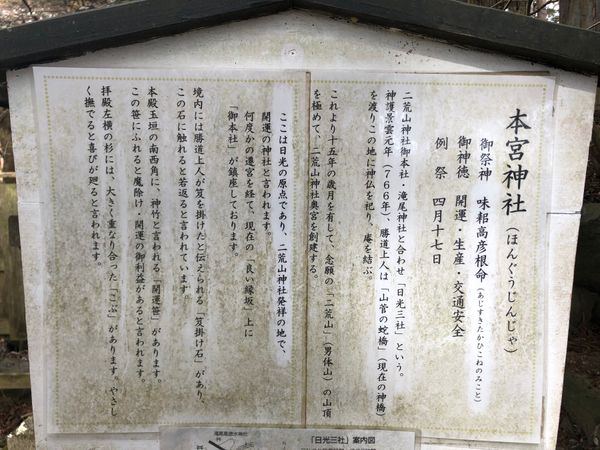 本宮神社（ほんぐうじんじゃ）
御祭神　味耜高彦根命（あじすきたかひこねのみこと）
御神徳　開運・生産・交通安全
例　祭　四月十七日
二荒山神社御本社・滝尾神社と合わせ「日光三社」という。
神護景雲元年（７６６年）、勝道上人は「山菅の蛇橋」（現在の神橋）
を渡りこの地に神仏を祀り、庵を結ぶ。
これより十五年の歳月を有して、念願の「二荒山」（男体山）の山頂
を極めて、二荒山神社奥宮を創建する。
ここは日光の原点であり、二荒山神社発祥の地で、
開運の神社と言われます。
何度かの遷宮を経て、現在の「良い縁坂」上に
「御本社」が鎮座しております。
境内には勝道上人が笈を掛けたと伝えられる「笈掛け石」があり、
この石に触れると若返ると言われています。
本殿玉垣の南西角に、神竹と言われる「開運笹」があります。
この笹にふれると魔除け・開運の御利益があると言われます。
拝殿左横の杉には、大きく重なり合った「こぶ」があります。やさし
く撫でると喜びが廻ると言われます。
「日光三社」案内図